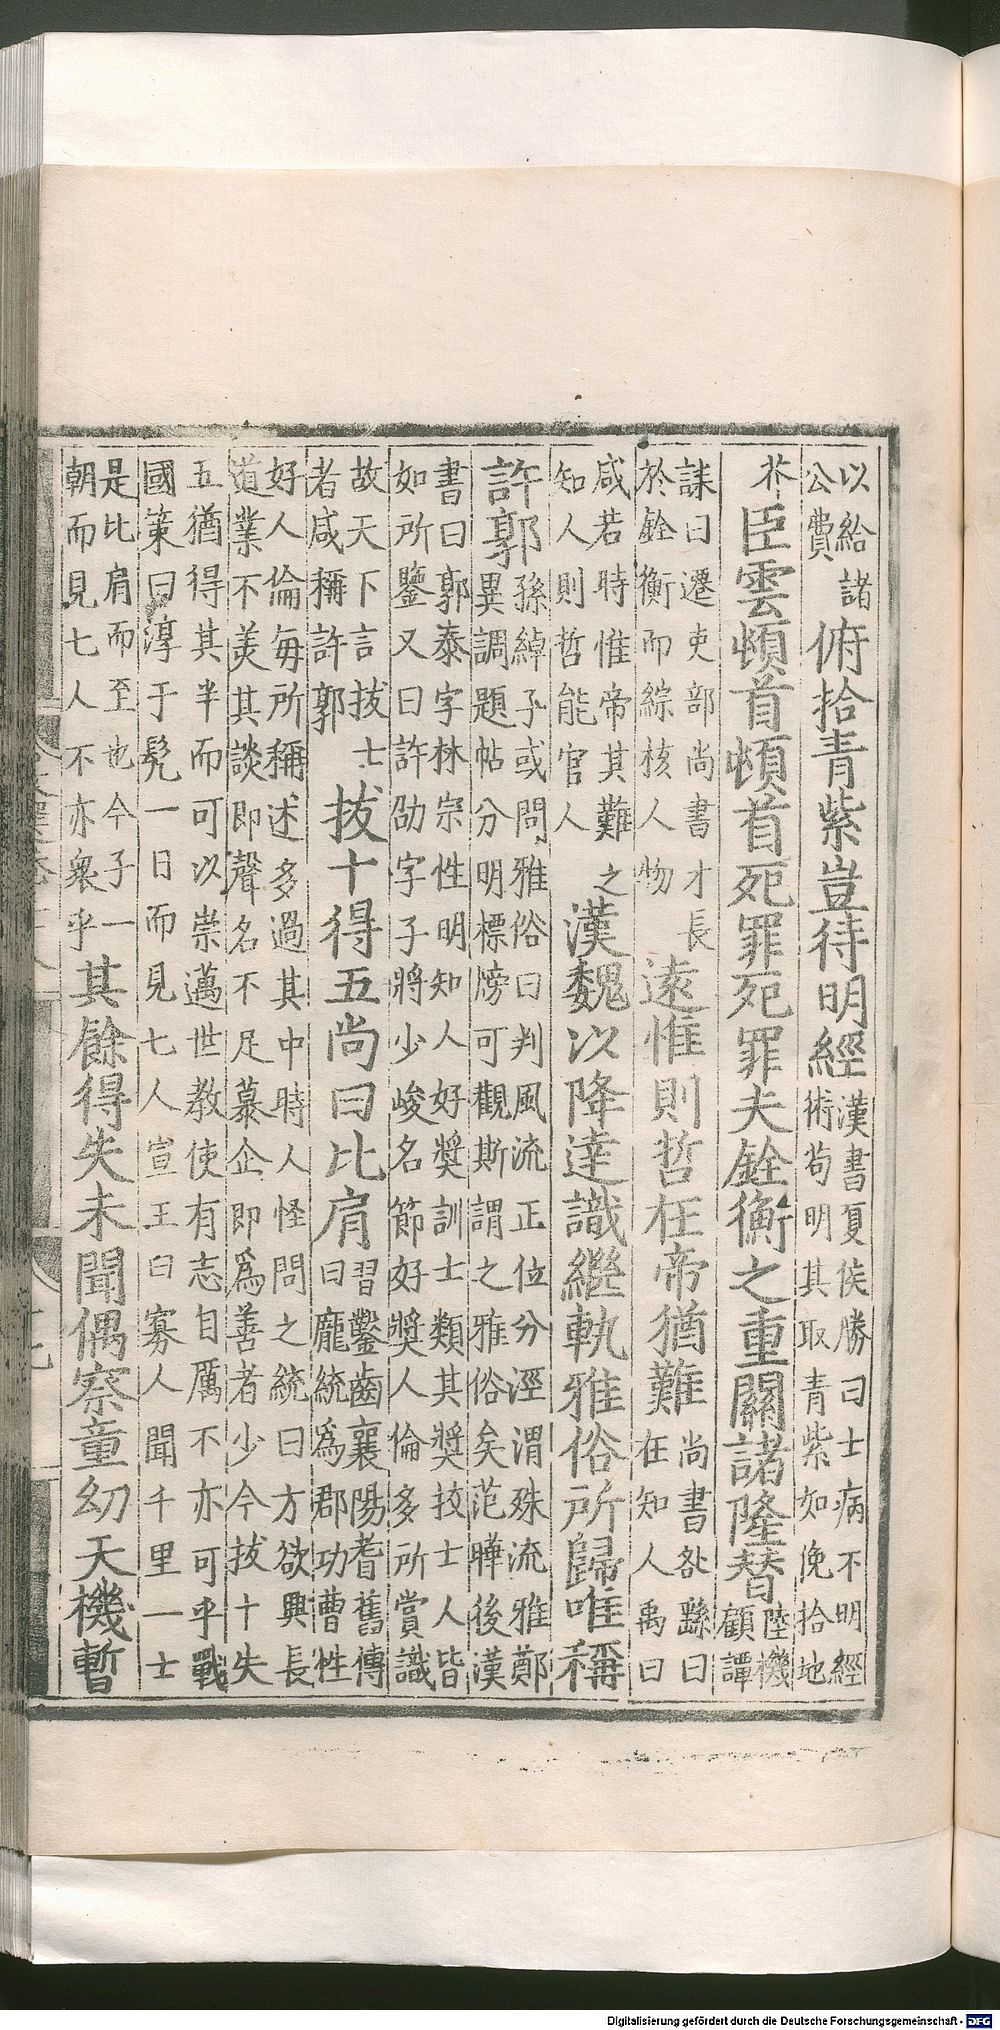 以給諸公費俯拾青紫豈待明經漢書夏侯勝曰士病不明經術茍明其取青紫如俛拾地
芥臣雲頓首頓首死罪死罪夫銓衡之重關諸隆替陸機顧譚
誄曰遷吏部尚書才長於銓衡而綜核人物遠惟則哲在帝猶難尚書咎繇曰在知人禹曰
咸若時惟帝其難之知人則哲能官人漢魏以降達識繼軌雅俗所歸唯稱
許郭孫綽子或問雅俗曰判風流正位分涇渭殊流雅鄭異調題帖分明標牓可觀斯謂之雅俗矣范曄後漢
書曰郭泰字林宗性明知人好獎訓士類其獎技士人皆如所鑒又曰許劭字子將少峻名節好獎人倫多所賞識
故天下言拔士者咸稱許郭拔十得五尚曰比肩習鑿齒襄陽耆舊傳曰龐統爲郡功曹性
好人倫每所稱述多過其中時人怪問之統曰方欲興長道業不美其談即聲名不足慕企即爲善者少今拔十失
五猶得其半而可以崇邁世教使有志自厲不亦可乎戰國策曰淳于髡一日而見七人宣王曰寡人聞千里一士
是比肩而至也今子一朝而見七人不亦衆乎其餘得失未聞偶察童幼天機暫
Digitalisierung gefördert durch die Deutsche Forschungsgemeinschaft - DFG